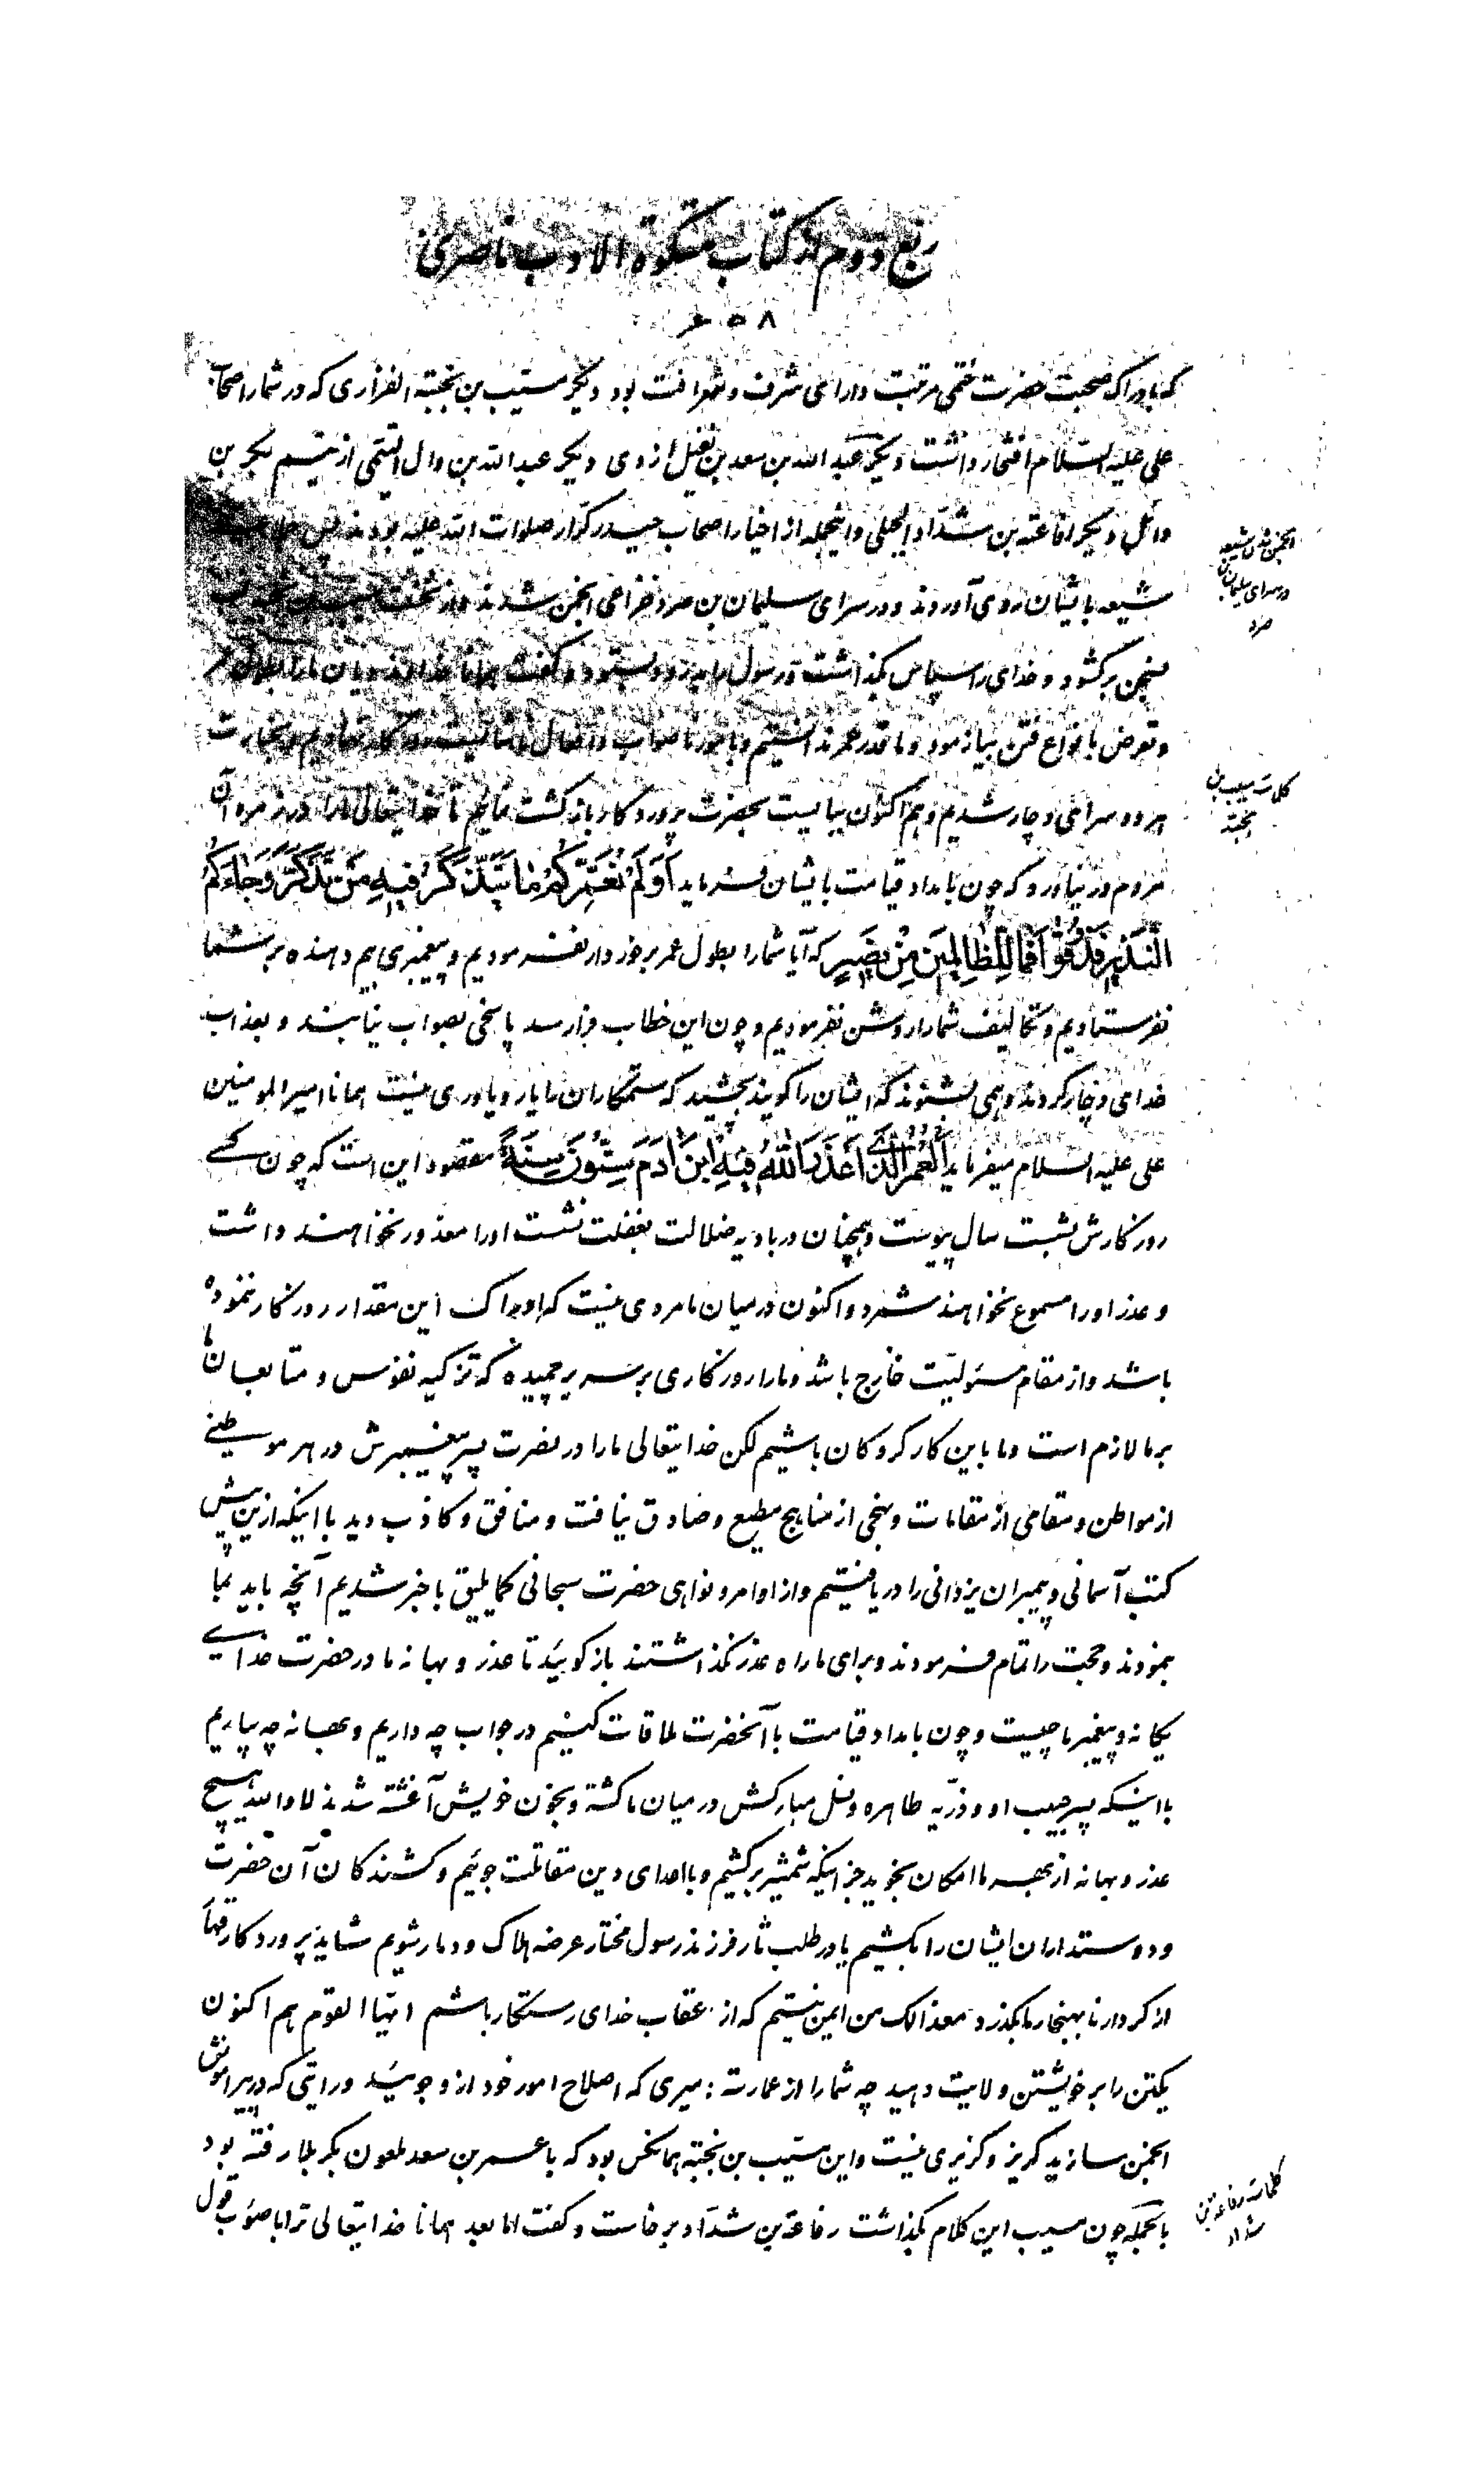 ربع دوم از کتاب مشکوة الادب ناصری
۶۵۸
که بادراک صحبت حضرت ختمی مرتبت دارای شرف و شرافت بود دیگر مسیب بن نجبة الفزاری که در شمار اصحاب
علی علیه السلام افتخار داشت دیگر عبد الله بن سعد بن نفیل ازدی دیگر عبد الله بن وال التیمی از تیم بکر بن
وائل دیگر رفاعة بن شداد البجلی و اینجمله از اخیار اصحاب حیدر کرار صلوات الله علیه بودند پس
شیعه بایشان روی آوردند و در سرای سلیمان بن صرد خزاعی انجمن شدند و از نخست مسیب بن نجبه لب
بسخن برگشود و خدای را سپاس بگذاشت و رسول را درود بستود و گفت همانا خداوند ما را بطول عمر
و تعرض بانواع فتن بیازمود و ما قدر عمر ندانستیم و بامور ناصواب و افعال
هر دو سرای دچار شدیم و هم اکنون ببایست بحضرت پروردگار بازگشت نمائیم تا خدایتعالی ما را در زمره آن
مردم در نیاورد که چون بامداد قیامت بایشان فرماید أَوَلَمْ نُعَمِّرْكُمْ مَا يَتَذَكَّرُ فِيهِ مَنْ تَذَكَّرَ وَجَاءَكُمُ
النَّذِيرُ فَذُوقُوا فَمَا لِلظَّالِمِينَ مِنْ نَصِيرٍ که آیا شما را بطول عمر برخوردار نفرمودیم و پیغمبری بیم دهنده بر شما
نفرستادیم و تکالیف شما را روشن نفرمودیم و چون این خطاب فرا رسد پاسخی بصواب نیابند و بعذاب
خدای دچار گردند و همی بشنوند که ایشان را گویند بچشید که ستمکاران را یار و یاوری نیست همانا امیر المومنین
علی علیه السلام میفرماید الْعُمْرُ الَّذِي أَعْذَرَ اللَّهُ فِيهِ ابْنَ آدَمَ سِتُّونَ سَنَةً مقصود این است که چون کسی
روزگارش بشصت سال پیوست و همچنان در بادیه ضلالت بغفلت نشست او را معذور نخواهند داشت
و عذر او را مسموع نخواهند شمرد و اکنون در میان ما مردی نیست که ادراک این مقدار روزگار ننموده
باشد و از مقام مسئولیت خارج باشد و ما را روزگاری بر سر بر چمیده که تزکیه نفوس و متابعان ما
بر ما لازم است و ما باین کار گروگان باشیم لکن خدایتعالی ما را در نصرت پسر پیغمبرش در هر موطنی
از مواطن و مقامی از مقامات و نهجی از مناهج مطیع و صادق نیافت و منافق و کاذب دید با اینکه ازین پیش
کتب آسمانی و پیمبران یزدانی را دریافتیم و از اوامر و نواهی حضرت سبحانی کما یلیق با خبر شدیم آنچه باید بما
بنمودند و حجت را تمام فرمودند و برای ما راه عذر نگذاشتند بازگوئید تا عذر و بهانه ما در حضرت خدای
یگانه و پیغمبر ما چیست و چون بامداد قیامت با آنحضرت ملاقات کنیم در جواب چه داریم و بهانه چه بیاریم
با اینکه پسر حبیب او و ذریه طاهره و نسل مبارکش در میان ما کشته و بخون خویش آغشته شدند لا والله هیچ
عذر و بهانه از بهر ما امکان نجوید جز اینکه شمشیر برکشیم و با اعدای دین مقاتلت جوئیم و کشندگان آن حضرت
و دوستداران ایشان را بکشیم یا در طلب ثار فرزند رسول مختار عرضه هلاک و دمار شویم شاید پروردگار قهار
از کردار نابهنجار ما بگذرد معذالک من ایمن نیستم که از عقاب خدای رستگار باشم ایها القوم هم اکنون
یکتن را بر خویشتن ولایت دهید چه شما را از عمارت امیری که اصلاح امور خود ازو جوئید و رایتی که در پیرامونش
انجمن سازید گریز و گزیری نیست و این مسیب بن نجبة همانکس بود که با عمر بن سعد ملعون بکربلا رفته بود
بالجمله چون مسیب این کلام بگذاشت رفاعة بن شداد برخاست و گفت اما بعد همانا خدایتعالی ترا باصوب قول
انجمن شدن شیعه
در سرای سلیمان بن
صرد
کلمات مسیب بن
نجبة
کلمات رفاعة بن
شداد